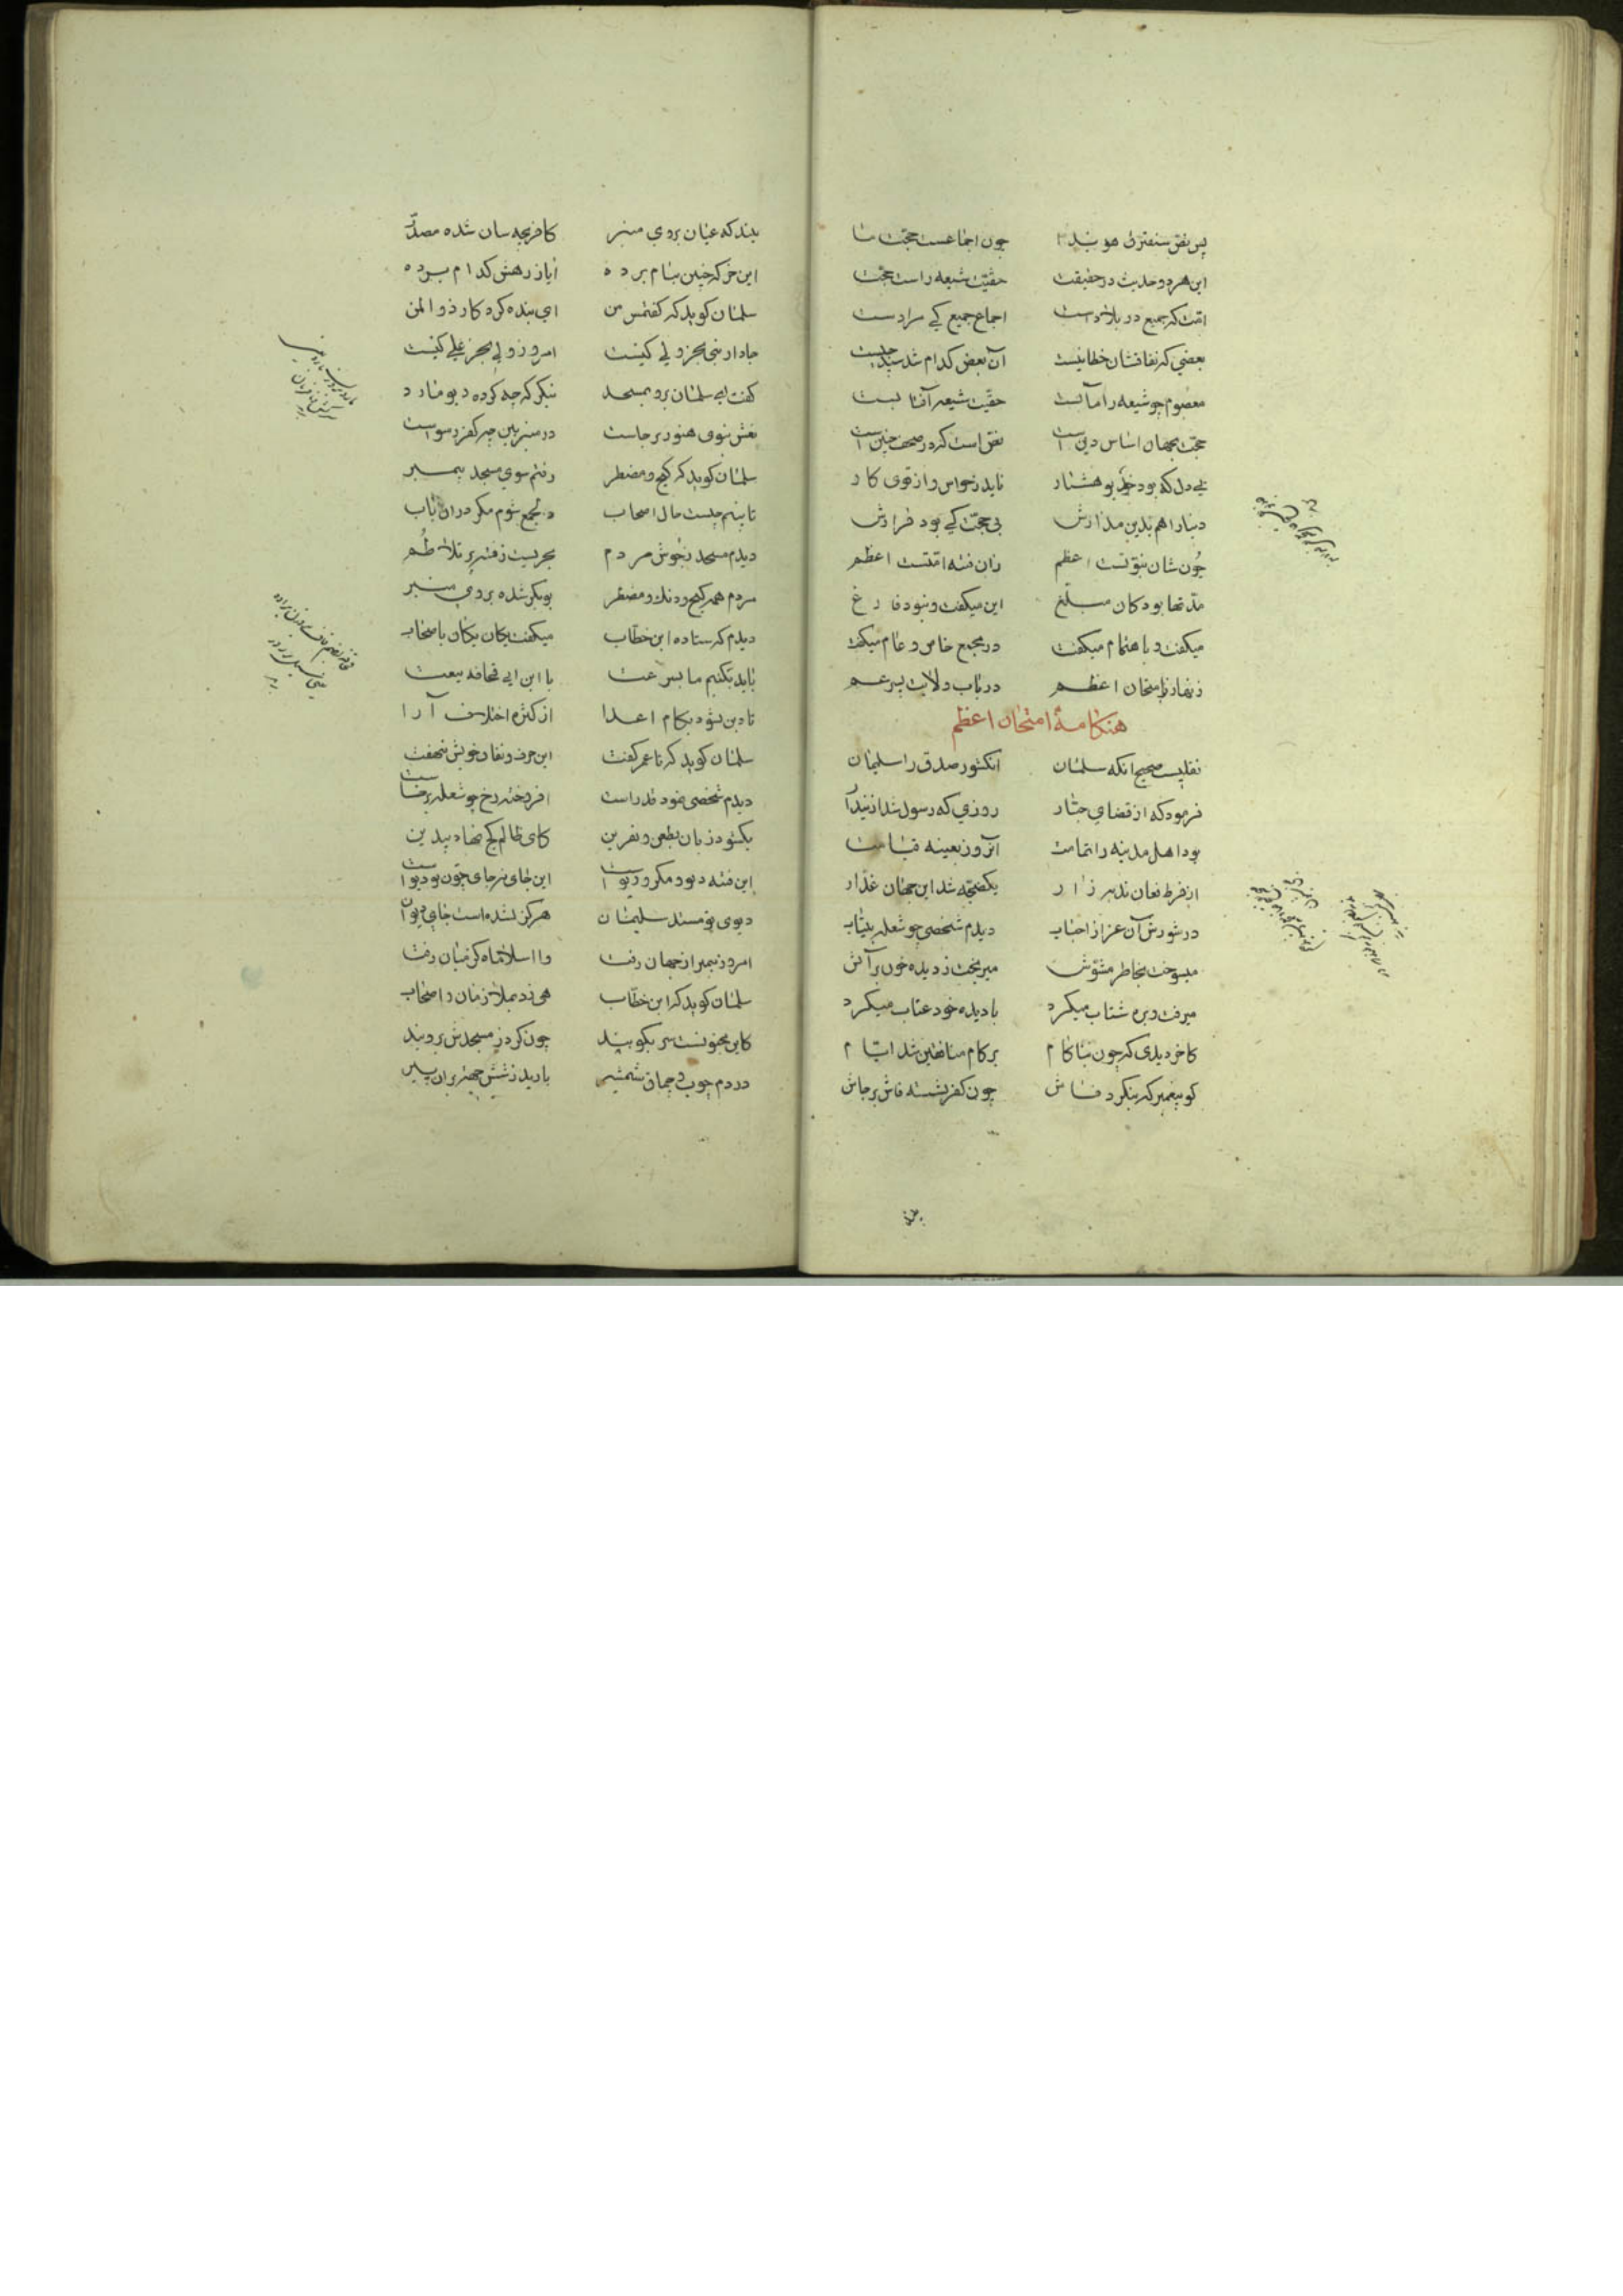 پس نفی سنفترق هویدا چون اجماعست حجت ما
این هر دو حدیث در حقیقت حقیت شیعه راست حجت
امت که جمیع در بلادست اجماع جمیع کی مرادست
بعضی که نفاقشان خطا نیست آن بعض کدام شد بگو چیست
معصوم چو شیعه را مآبست حقیت شیعه آفتابست
حجت بجهان اساس دین است نص است که در صحف چنین است
بی دل که بود خرد بوهشدار ناید ز حواس و از قوی کار
دنیا را هم بدین مدارش بی حجت کی بود قرارش
چون شان نبوتست اعظم زان فتنه امتست اعظم
مدتها بود کان مبلغ این میکفت و نبود فارغ
میکفت و باهتمام میکفت در مجمع خاص و عام میکفت
زنهار ز امتحان اعظم در باب ولایت پسر عم
هنکامهٔ امتحان اعظم
نقلیست صحیح انکه سلمان انکشور صدق را سلیمان
فرمود که از قضای جبار روزی که رسول شد ازین دار
بود اهل مدینه را تمامت آنروز بعینه قیامت
از فرط فغان ندبه زار یکضجه شد این جهان غدار
در شورش آن عزا ز احباب دیدم شخصی چو شعله بیتاب
میسوخت بخاطر مشوش میریخت ز دیده خون پر آتش
میرفت و بره شتاب میکرد با دیده خود عتاب میکرد
کاخر دیدی که چون بناکام بر کام منافقین شد ایام
کو پیغمبر که بنکرد فاش چون کفر نشسته فاش بر جاش
بیند که عیان بروی منبر کافر بچه سان شده مصدر
این خر که چنین بنام برده ایا ز رهش کدام برده
سلمان کوید که کفتمش من ای بنده کردکار ذو المن
جا دار نبی بجز ولی کیست امروز ولی بجز علی کیست
کفت ای سلمان برو بمسجد بنکر که چه کرده دیو مارد
نعش نبوی هنوز برجاست در منبر بین چه کفر رسواست
سلمان کوید که کیج و مضطر رفتم سوی مسجد پیمبر
تا بینم چیست حال اصحاب در جمع شوم مکر در آن باب
دیدم مسجد ز جوش مردم بحریست ز فتنه پر تلاطم
مردم همه کیج و دنک و مضطر بوبکر شده بروی منبر
دیدم که ستاده ابن خطاب میکفت یکان یکان باصحاب
باید بکنیم ما بسرعت با ابن ابی قحافه بیعت
تا دین نشود بکام اعدا از کثره اختلاف آرا
سلمان کوید که تا عمر کفت این حرف و نفاق خویش ننهفت
دیدم شخصی نمود قد راست افروخته رخ چو شعله برخاست
بکشود زبان بطعن و نفرین کای ظالم کج نهاد بیدین
این فتنه دیو و مکر و ریو است این جای نه جای چون تو دیو است
دیوی تو مسند سلیمان هرکز نشده است جای دیوان
امروز پیمبر از جهان رفت وا اسلاماه کز میان رفت
سلمان کوید که ابن خطاب هی زد بملازمان و اصحاب
کاین مجنونست سر بکوبید چون کرد ز مسجدش بروبید
در دم چوب و چماق و شمشیر بارید ز شش جهة بران پیر